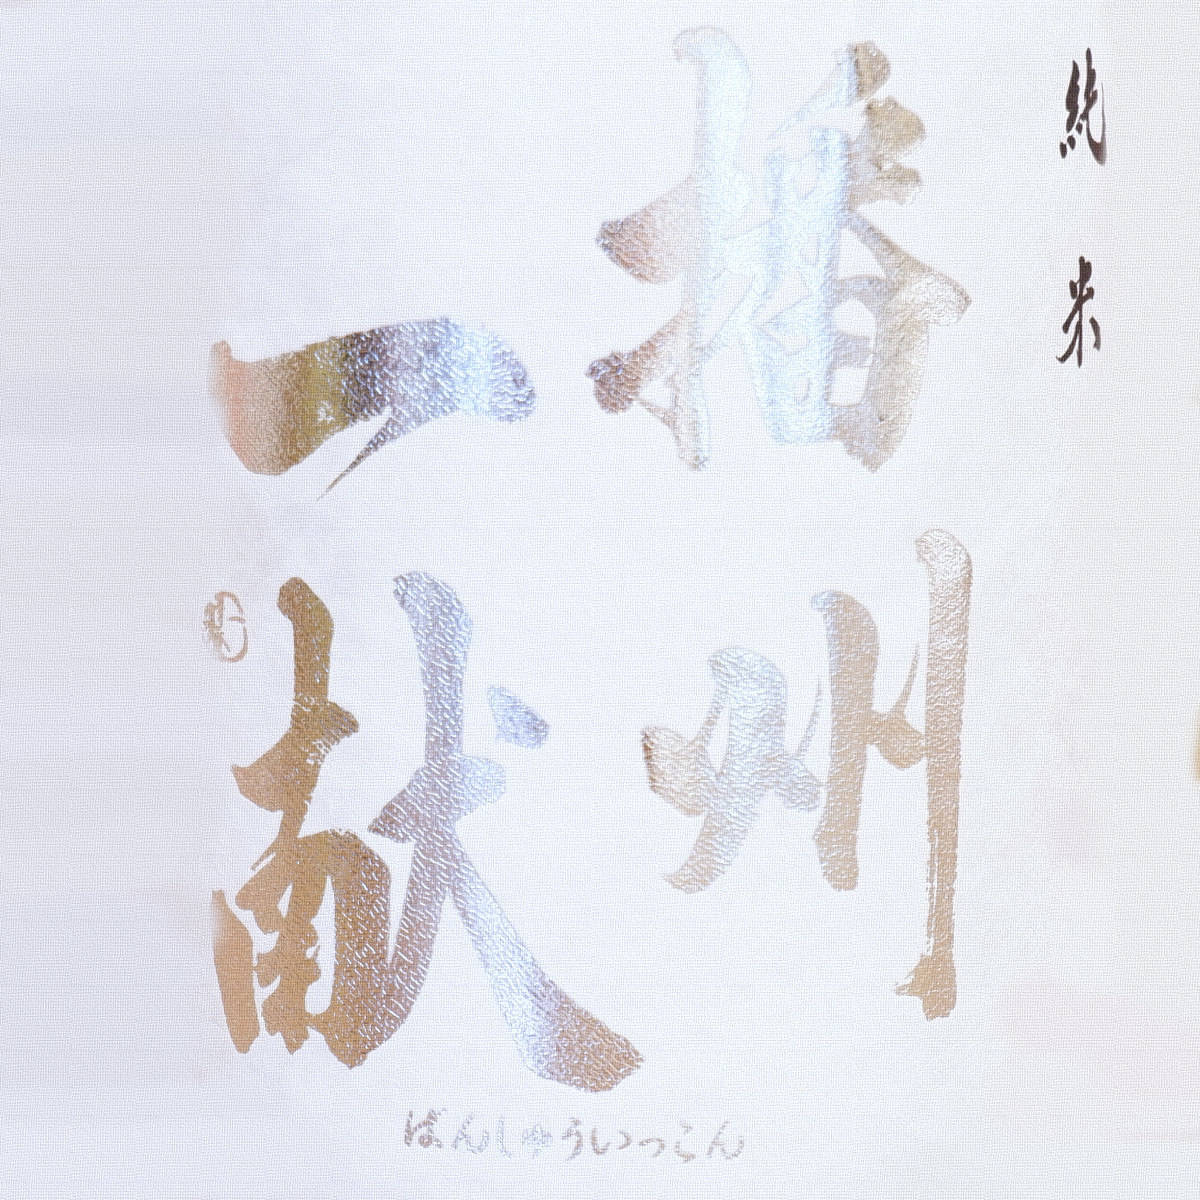 純米
播州
一献
ばんしゅういっこん